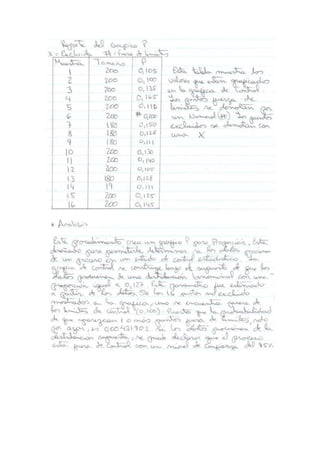 Reporte del Gráfico P
X = Excluida  # = Fuera de Límites
Muestra Tamaño P
1 200 0,105
2 200 0,100
3 200 0,135
4 200 0,165
5 200 0,115
6 200 # 0,200
7 180 0,150
8 180 0,128
9 180 0,111
10 200 0,130
11 200 0,140
12 200 0,105
13 180 0,128
14 19 0,111
15 200 0,125
16 200 0,145
Esta tabla muestra los
valores que están graficados
en la gráfica de Control.
Los puntos fuera de
límites se denotan por
un Numeral (#). Los puntos
excluidos se denotan con
una X
* Análisis
Este procedimiento crea un gráfico P para Proporción. Está
diseñado para permitirle determinar si los datos provienen
de un proceso en un estado de control estadístico. La
gráfica de control se construye bajo el supuesto de que los
datos provienen de una distribución binomial con una
proporción igual a 0,127. Este parámetro fue estimado
a partir de los datos. De los 16 puntos no excluidos
mostrados en la gráfica, uno se encuentra fuera de
los límites de control (0,200). Puesto que la probabilidad
de que aparezcan 1 o más puntos fuera de límites, solo
por azar, es 0,00431902 Si los datos provienen de la
distribución supuesta, se puede declarar que el proceso
está fuera de control con un nivel de confianza del 95%